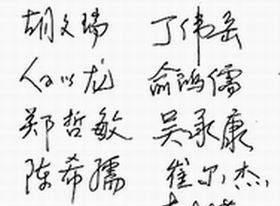 胡文瑞 丁伟岳
何以龙 俞鸿儒
郑哲敏 吴承康
陈希孺 崔尔杰